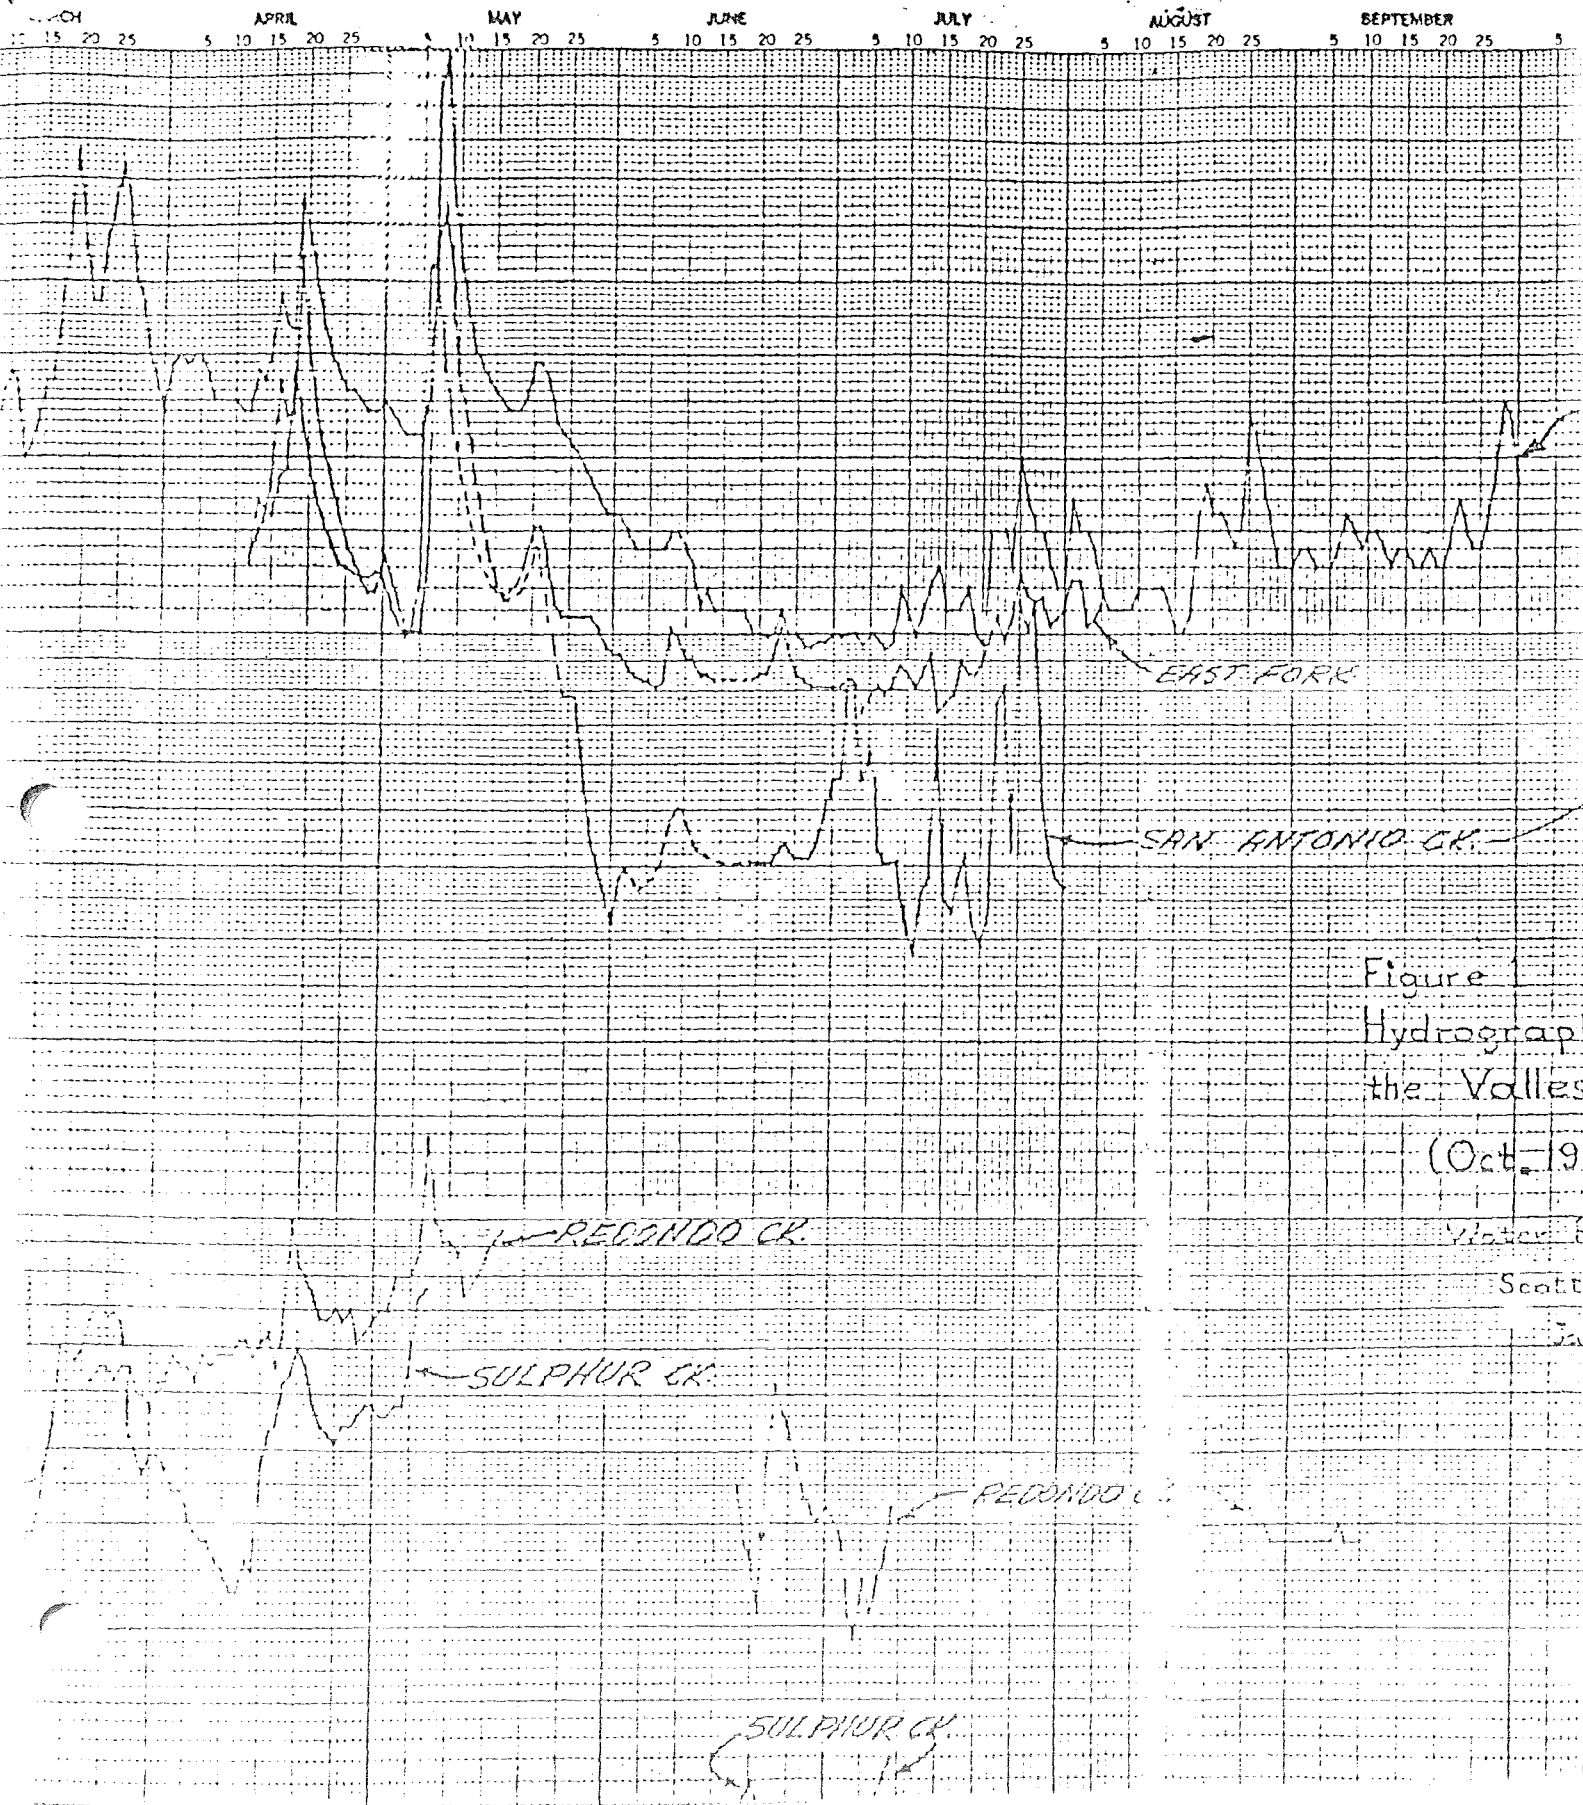 CH APRIL MAY JUNE JULY AUGUST SEPTEMBER
10 15 20 25 5 10 15 20 25 5 10 15 20 25 5 10 15 20 25 5 10 15 20 25 5 10 15 20 25 5 10 15 20 25 5
EAST FORK
SAN ANTONIO CK.
Figure 1
Hydrograp
the Valles
(Oct. 19
REDONDO CK.
Water
Scott
SULPHUR CK.
REDONDO C
SULPHUR CK